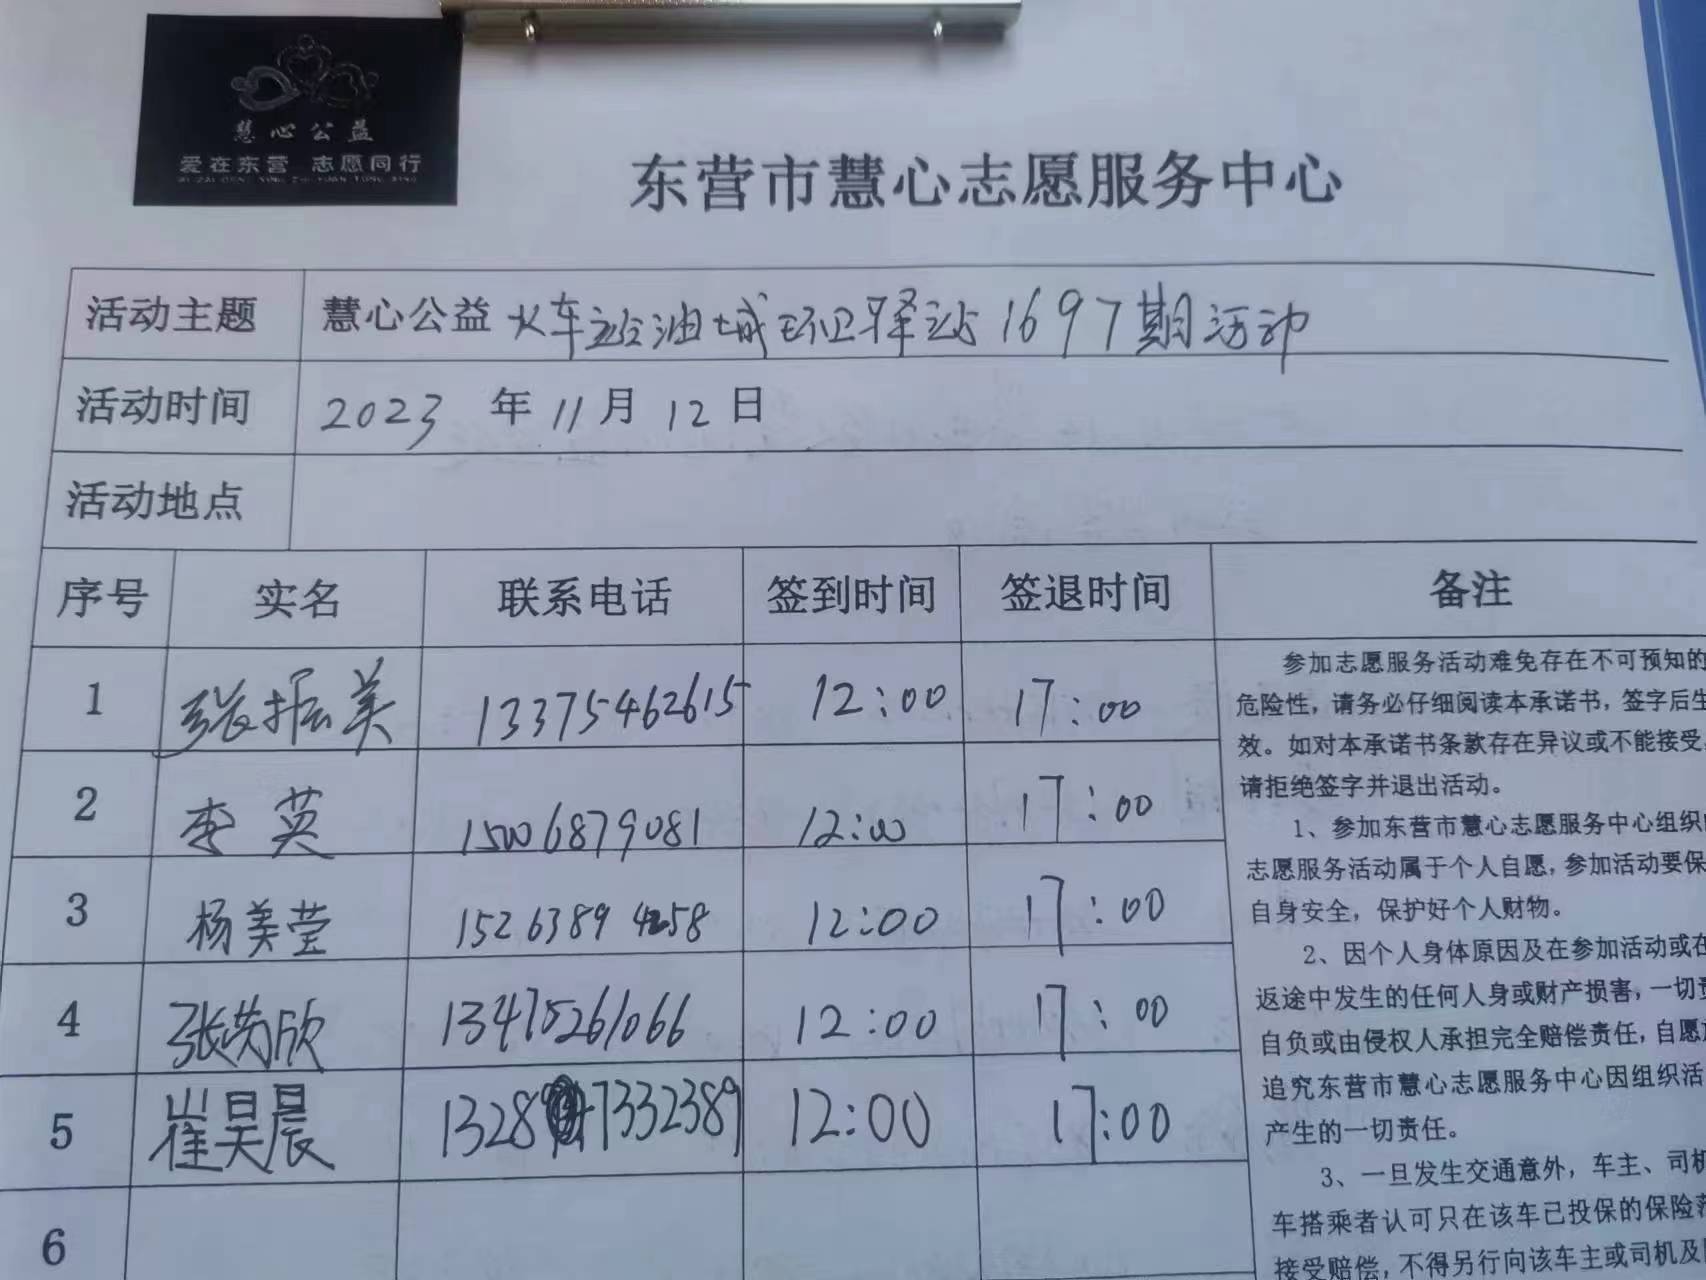 慧心公益
爱在东营 志愿同行
东营市慧心志愿服务中心
活动主题 慧心公益 火车站油城环卫驿站1697期活动
活动时间 2023 年 11 月 12 日
活动地点
序号 实名 联系电话 签到时间 签退时间 备注
1 张振美 13375462615 12:00 17:00
2 李英 15006879081 12:00 17:00
3 杨美莹 1526389 4258 12:00 17:00
4 张芮欣 13475261066 12:00 17:00
5 崔昊晨 1328 7332389 12:00 17:00
6
参加志愿服务活动难免存在不可预知的
危险性,请务必仔细阅读本承诺书,签字后生
效。如对本承诺书条款存在异议或不能接受,
请拒绝签字并退出活动。
1、参加东营市慧心志愿服务中心组织
志愿服务活动属于个人自愿,参加活动要保
自身安全,保护好个人财物。
2、因个人身体原因及在参加活动或在
返途中发生的任何人身或财产损害,一切责
自负或由侵权人承担完全赔偿责任,自愿
追究东营市慧心志愿服务中心因组织活
产生的一切责任。
3、一旦发生交通意外,车主、司机
车搭乘者认可只在该车已投保的保险范
接受赔偿,不得另行向该车主或司机及